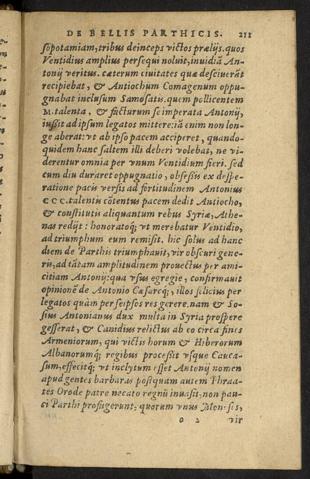 DE BELLIS PARTHICIS. 211
sopotamiam, tribus deinceps victos prælijs. quos
Ventidius amplius persequi noluit, inuidiã An-
tonij veritus. cæterum ciuitates quæ desciuerãt
recipiebat, & Antiochum Comagenum oppu-
gnabat inclusum Samosatis. quem pollicentem
M. talenta, & facturum se imperata Antonij,
iussit ad ipsum legatos mittere: iã enim non lon-
ge aberat: vt ab ipso pacem acciperet, quando-
quidem hanc saltem illi deberi volebat, ne vi-
derentur omnia per vnum Ventidium fieri. sed
cum diu duraret oppugnatio, obsessis ex despe-
ratione pacis versis ad fortitudinem Antonius
CCC. talentis cõtentus pacem dedit Antiocho,
& constitutis aliquantum rebus Syriæ, Athe-
nas redijt: honoratoq; vt merebatur Ventidio,
ad triumphum eum remisit. hic solus ad hanc
diem de Parthis triumphauit, vir obscuri gene-
ris, ad tãtam amplitudinem prouectus per ami-
citiam Antony: qua vsus egregie, confirmauit
opinionẽ de Antonio Cæsarcq;, illos felicius per
legatos quàm per seipsos res gerere. nam & So-
sius Antonianus dux multa in Syria prospere
gesserat, & Canidius relictus ab eo circa fines
Armeniorum, qui victis horum & Hiberorum
Albanorumq; regibus processit vsque Cauca-
sum, effecitq; vt inclytum esset Antonij nomen
apud gentes barbaras postquam autem Phraa-
tes Orode patre necato regnũ inuasit, non pau-
ci Parthi profugerunt: quorum vnus Monæses,
o 2 vir